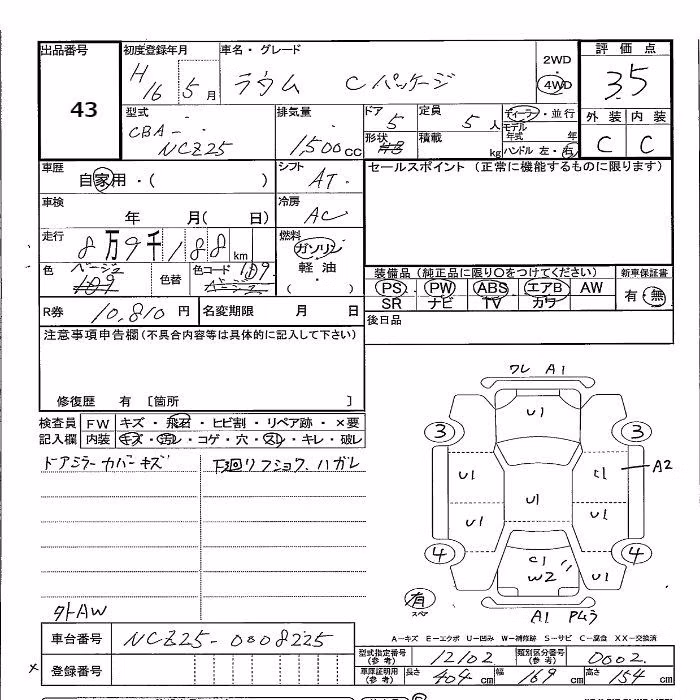 出品番号 初度登録年月 車名・グレード 評価点
43 H16 5月 ラウム Cパッケージ 2WD 4WD 3.5
型式 排気量 ドア 定員 ディーラー・並行 外装 内装
CBA-NCZ25 1,500cc 5 5人 モデル年式 年 C C
形状 積載 kg ハンドル 左・右
車歴 シフト セールスポイント (正常に機能するものに限ります)
自家用・( ) AT
車検 冷房
年 月( 日) AC
走行 燃料
8万9千188km ガソリン
色 ベージュ 色替 色コード 189 軽油
109 ベージュ ( ・ )
装備品(純正品に限り○をつけてください) 新車保証書
PS PW ABS エアB AW 有・無
SR ナビ TV カワ
R券 10,810円 名変期限 月 日 後日品
注意事項申告欄(不具合内容等は具体的に記入して下さい)
修復歴 有 〔箇所 〕
検査員 FW キズ・飛石・ヒビ割・リペア跡・×要
記入欄 内装 キズ・汚レ・コゲ・穴・スレ・キレ・破レ
ドアミラーカバーキズ 下廻リフショク、ハガレ
外AW
ワレ A1
U1
3 3
U1 C1 A2
U1
U1 U1
4 4
C1
W2 U1
有 スペア
A1 Pムラ
A-キズ E-エクボ U-凹み W-補修跡 S-サビ C-腐食 XX-交換済
車台番号 NCZ25-0008225
型式指定番号(参考) 12102 類別区分番号(参考) 0002
登録番号
車庫証明用(参考) 長さ 404cm 幅 169cm 高さ 154cm